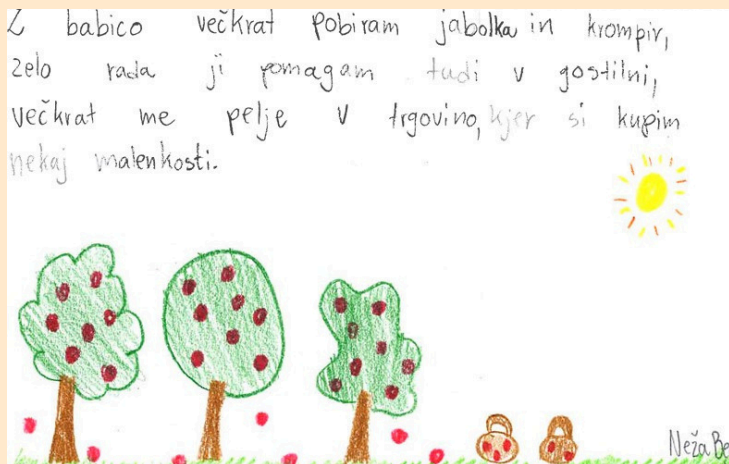 Z babico večkrat pobiram jabolka in krompir,
zelo rada ji pomagam tudi v gostilni,
večkrat me pelje v trgovino, kjer si kupim
nekaj malenkosti.
Neža Be